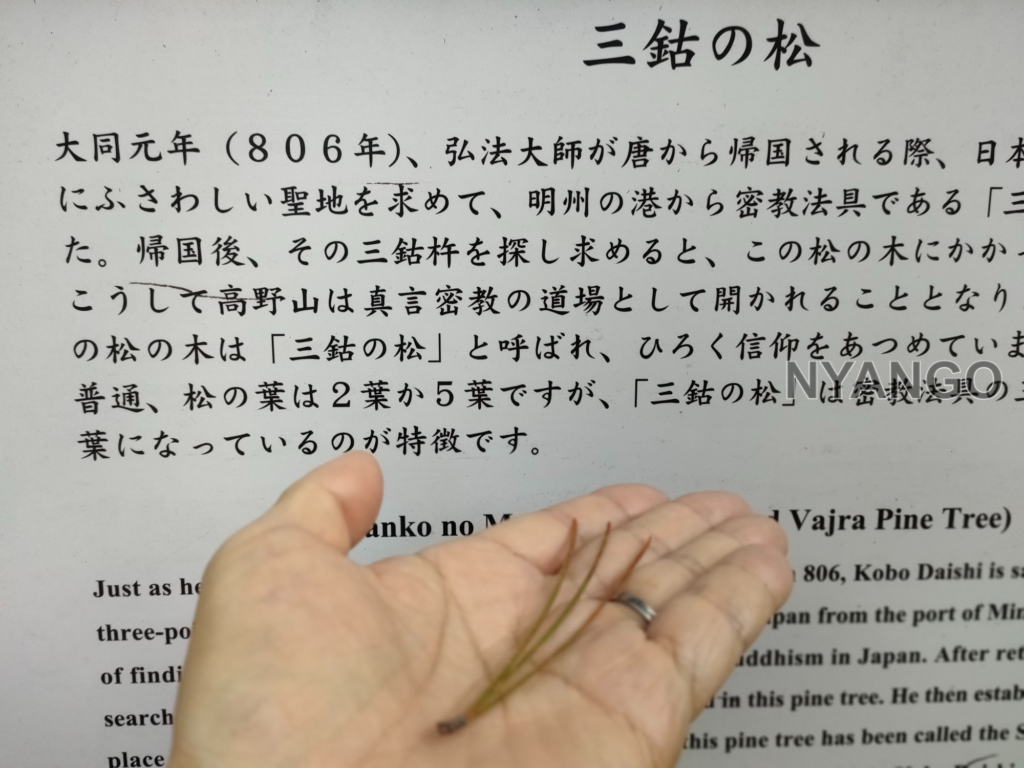 三鈷の松
大同元年（８０６年）、弘法大師が唐から帰国される際、日本
にふさわしい聖地を求めて、明州の港から密教法具である「三
た。帰国後、その三鈷杵を探し求めると、この松の木にかかっ
こうして高野山は真言密教の道場として開かれることとなり
の松の木は「三鈷の松」と呼ばれ、ひろく信仰をあつめていま
NYANGO
普通、松の葉は２葉か５葉ですが、「三鈷の松」は密教法具の三
葉になっているのが特徴です。
anko no M Vajra Pine Tree)
Just as he 806, Kobo Daishi is sa
three-po pan from the port of Min
of findi uddhism in Japan. After ret
search in this pine tree. He then estab
place this pine tree has been called the S